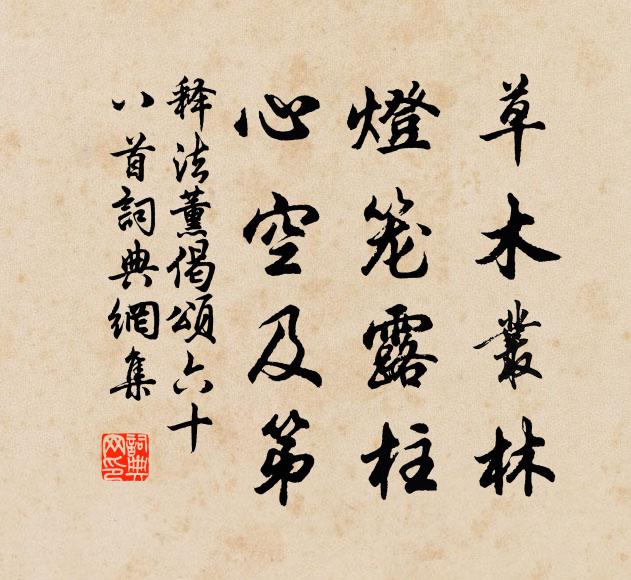 草木叢林
燈笼露柱
心空及第
释法薰偈頌六十
八首詞典網集
詞典網印